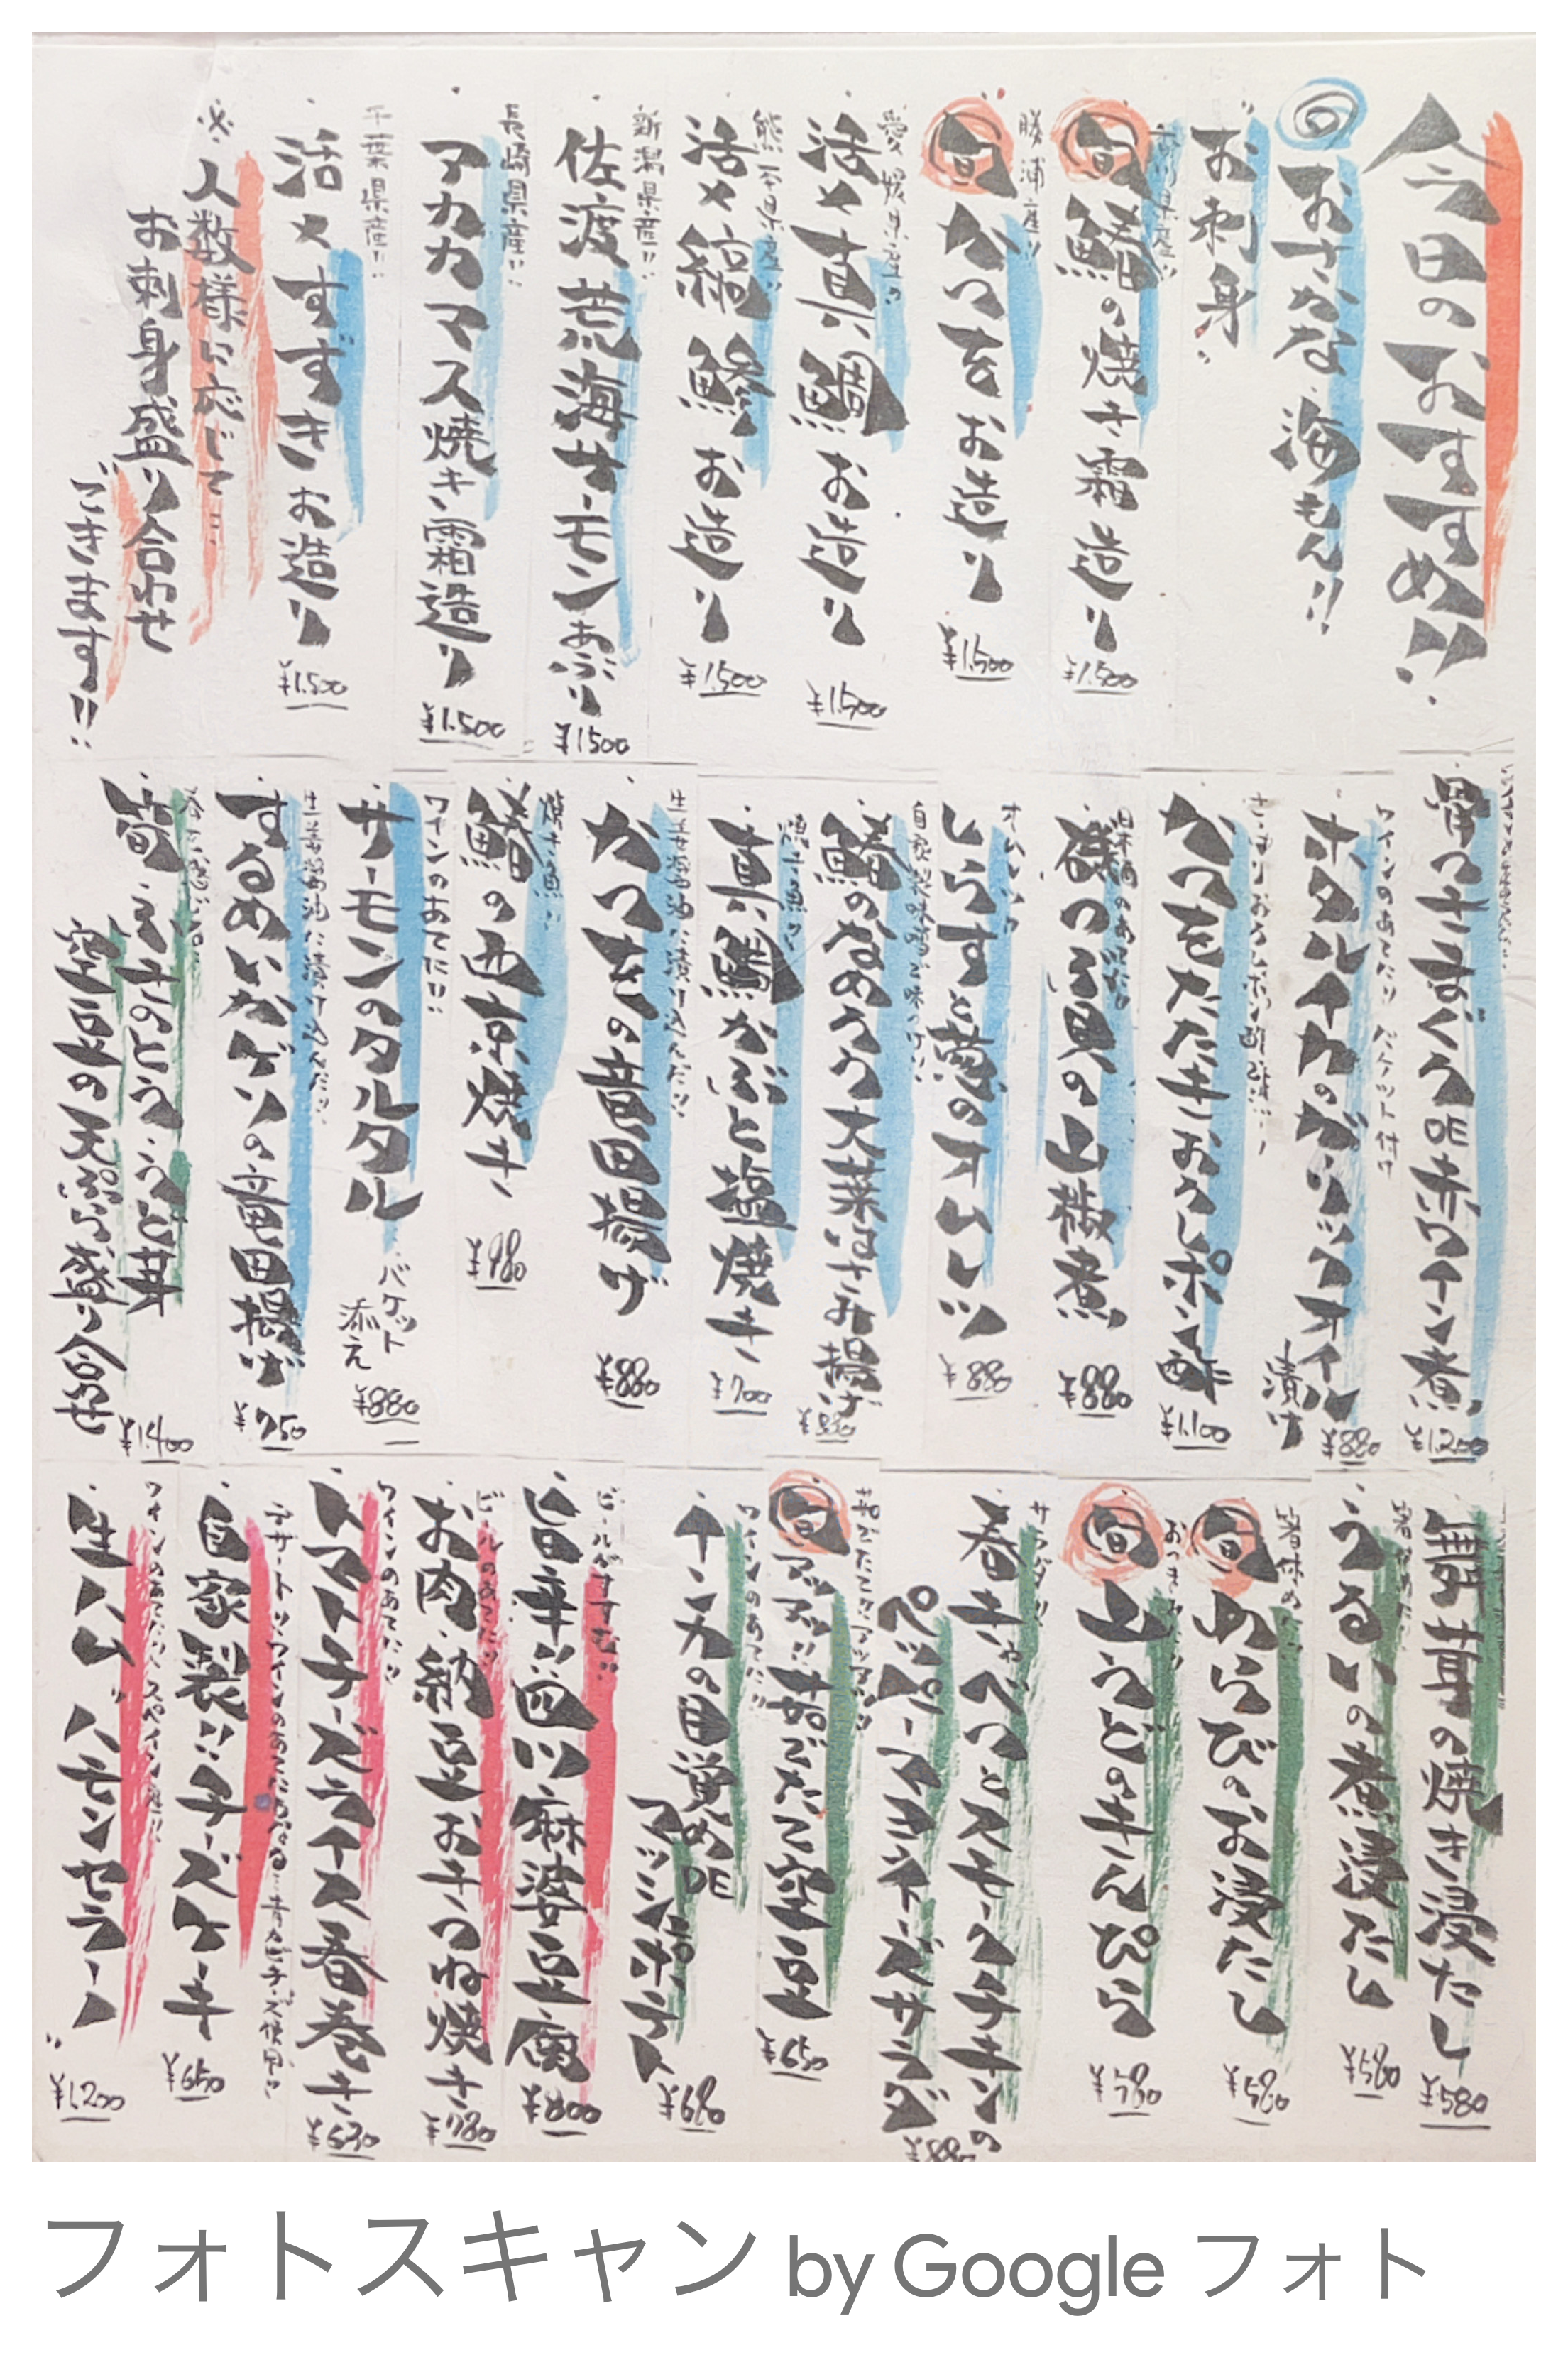 今日のおすすめ!!
おさかな 海もん!!
お刺身
旬 鰆の焼き霜造り
¥1,500
勝浦産!!
旬 かつを お造り
¥1,500
愛媛県産の
活〆真鯛 お造り
¥1,500
熊本県産!!
活〆縞鯵 お造り
¥1,500
新潟県産!!
佐渡荒海サーモンあぶり
¥1500
長崎県産!!
アカカマス焼き霜造り
¥1,500
千葉県産!!
活〆すずき お造り
¥1,500
※人数様に応じて…
お刺身盛り合わせ
できます!!
骨つきまぐろDE赤ワイン煮
¥1,200
ワインのあてに!! バケット付き
ホタルイカのガーリックオイル漬け
¥880
かつをたたき おろしポン酢
¥1,100
日本酒のあてに!!
磯つぶ貝の山椒煮
¥880
オムレツ
しらすと葱のオムレツ
¥880
自家製味噌で味つけ!!
鰆のなめろう大葉はさみ揚げ
¥880
焼き魚!!
真鯛かぶと塩焼き
¥700
生姜醤油に漬け込んだ!!
かつをの竜田揚げ
¥880
焼き魚!!
鰆の西京焼き
¥980
ワインのあてに!!
サーモンのタルタル バケット添え
¥880
生姜醤油に漬け込んだ!!
するめいかげその竜田揚げ
¥750
筍・ふきのとう・うど・丼
空豆の天ぷら盛り合せ
¥1,400
舞茸の焼き浸たし
¥580
うるいの煮浸たし
¥580
箸休め!!
旬 わらびのお浸たし
¥580
おつまみ!!
旬 山うどのきんぴら
¥580
サラダ!!
春きゃべつとスモークチキンの
ペッパーマヨネーズサラダ
¥880
茹でたてアツアツ!!
旬 アツアツ!!茹でたて空豆
¥650
ワインのあてに!!
インカの目覚めDE
マッシュポテト
¥680
ビールがすすむ!!
旨辛!!四川麻婆豆腐
¥800
ビールのあてに!!
お肉・納豆おきつね焼き
¥780
ワインのあてに!!
トマトチーズライス春巻き
¥630
デザートに!!ワインのあてにもなる…青カビチーズ使用!!
自家製!!チーズケーキ
¥650
ワインのあてに!!スペイン産!!
生ハム "ハモンセラーノ"
¥1,200
フォトスキャン by Google フォト